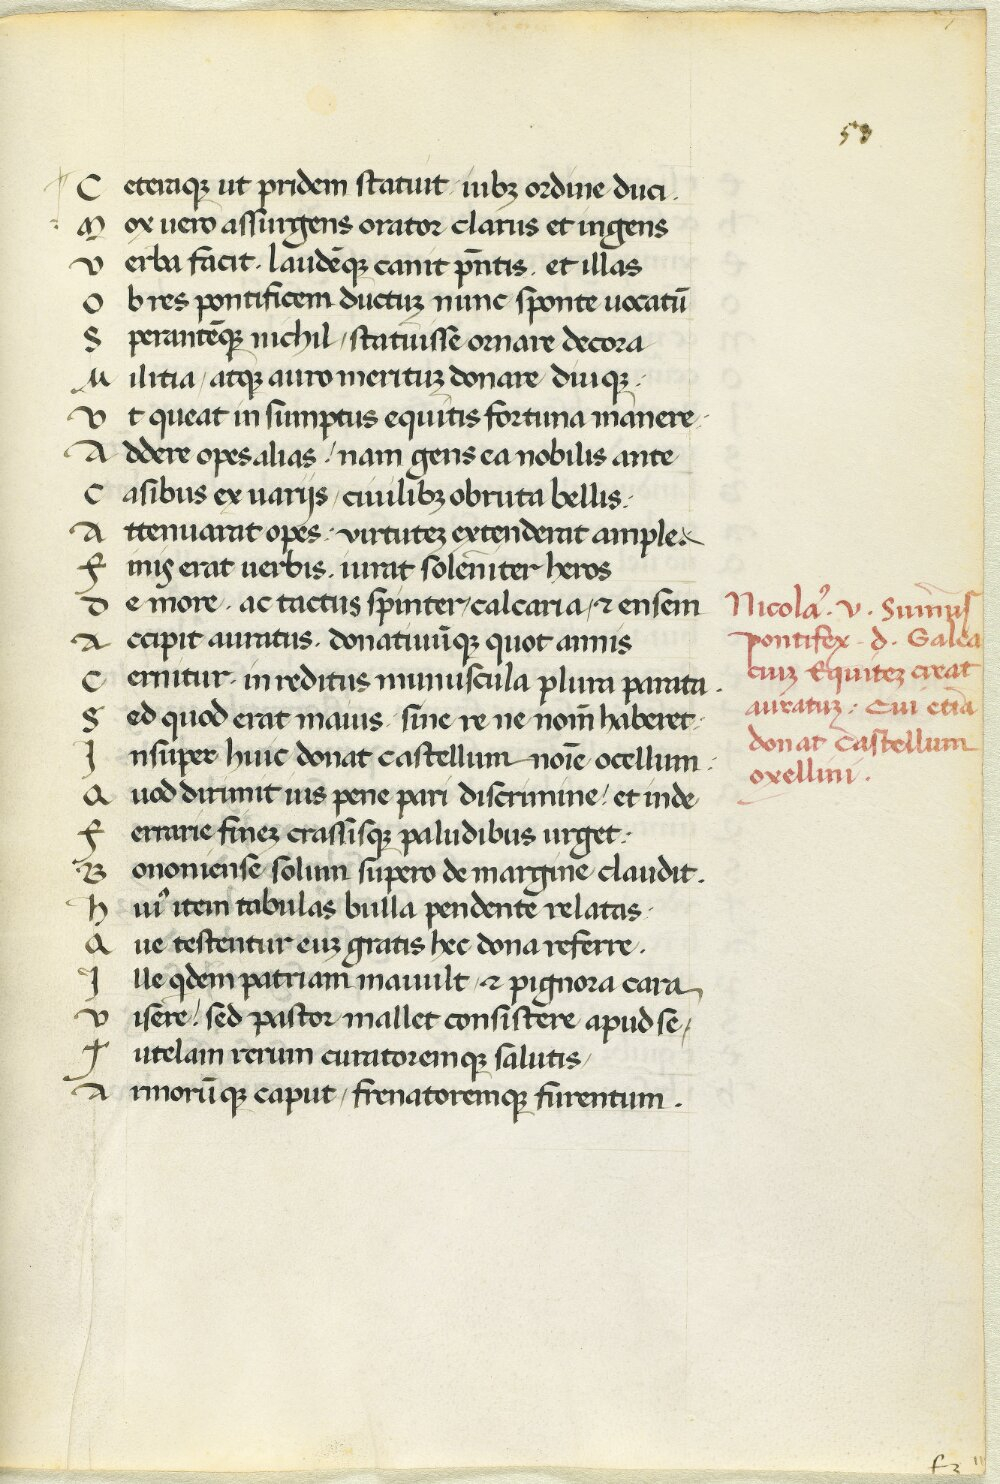 53
Ceteraqꝫ ut pridem statuit / iubꝫ ordine duci .
Mox uero assurgens orator clarus et ingens
Verba facit . laudēqꝫ canit pn̄tis . et illas
Ob res pontificem ductuꝫ nunc sponte uocatū
Sperantēqꝫ nichil / statuisse ornare decora
Militia / atqꝫ auro merituꝫ donare diuiqꝫ .
Vt queat in sumptus equitis fortuna manere .
Addere opes alias . nam gens ea nobilis ante
Casibus ex uarijs / ciuilibꝫ obruta bellis .
Attenuarat opes . virtuteꝫ extenderat ample .
Finis erat uerbis . iurat solēniter heros
De more . ac tactus spinter / calcaria / ⁊ ensem
Accipit auratus . donatiuūqꝫ quot annis
Cernitur . in reditus munuscula plura parata .
Sed quod erat maius . sine re ne nom̄ haberet .
Insuper huic donat castellum noīe ocellum .
Quod dirimit ius pene pari discrimine / et inde
Ferrarie fineꝫ crassisqꝫ paludibus urget .
Bononiense solum supero de margine claudit .
Huic item tabulas bulla pendente relatas .
Que testentur euꝫ gratis hec dona referre .
Ille qdem patriam mauult / ⁊ pignora cara
Visere / sed pastor mallet consistere apud se /
Tutelam rerum curatoremqꝫ salutis /
Armorūqꝫ caput / frenatoremqꝫ furentum .
Nicola⁹ . v . Sum̄us
pontifex . d . Galea
cuiꝫ Equiteꝫ creat
auratuꝫ . Cui etiā
donat Castellum
oxellini .